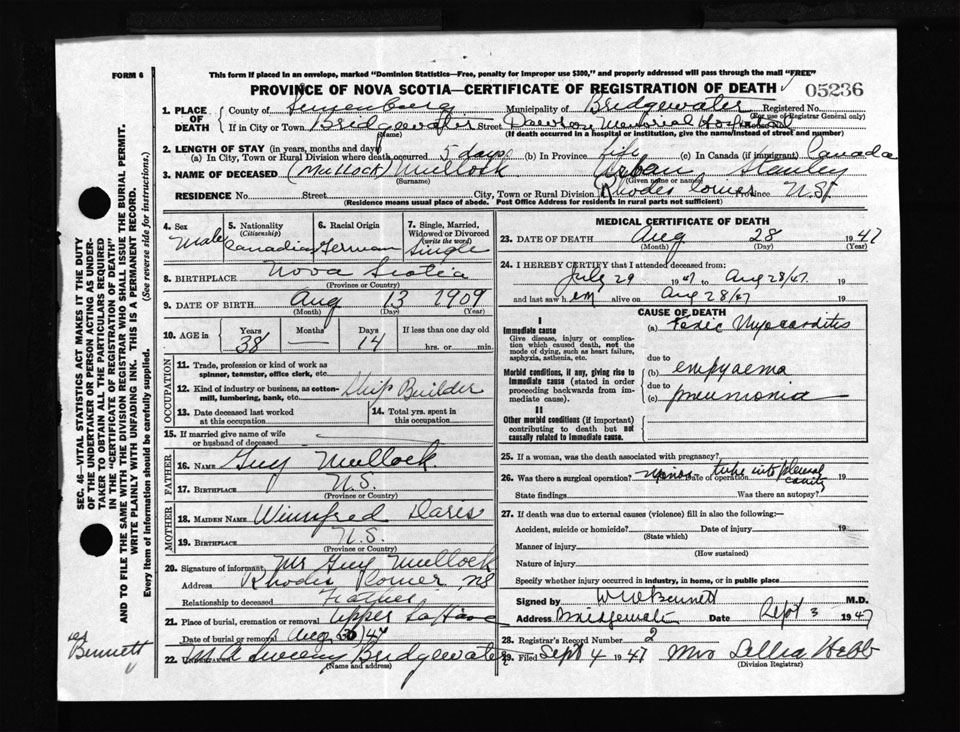 FORM 6
This form if placed in an envelope, marked "Dominion Statistics—Free, penalty for improper use $300," and properly addressed will pass through the mail "FREE"
PROVINCE OF NOVA SCOTIA—CERTIFICATE OF REGISTRATION OF DEATH
05236
1. PLACE OF DEATH
County of Lunenburg Municipality of Bridgewater Registered No.
(For use of Registrar General only)
If in City or Town Bridgewater Street Dawson Memorial Hospital
(Name) (If death occurred in a hospital or institution, give the name instead of street and number)
2. LENGTH OF STAY (in years, months and days)
(a) In City, Town or Rural Division where death occurred 5 days (b) In Province life (c) In Canada (if immigrant) Canada
3. NAME OF DECEASED (Mullock) Mullock Urban Stanley
(Surname) (Given name or names)
RESIDENCE No. Street City, Town or Rural Division Rhodes Corner N.S.
(Residence means usual place of abode. Post Office Address for residents in rural parts not sufficient)
4. Sex Male
5. Nationality (Citizenship) Canadian
6. Racial Origin German
7. Single, Married, Widowed or Divorced (write the word) Single
8. BIRTHPLACE Nova Scotia
(Province or Country)
9. DATE OF BIRTH Aug 13 1909
(Month) (Day) (Year)
10. AGE in Years 38 Months — Days 14 If less than one day old hrs. or min.
OCCUPATION
11. Trade, profession or kind of work as spinner, teamster, office clerk, etc.
12. Kind of industry or business, as cotton-mill, lumbering, bank, etc. Ship Builder
13. Date deceased last worked at this occupation
14. Total yrs. spent in this occupation
15. If married give name of wife or husband of deceased
FATHER
16. NAME Guy Mullock
17. BIRTHPLACE N.S.
(Province or Country)
MOTHER
18. MAIDEN NAME Winnifred Daris
19. BIRTHPLACE N.S.
(Province or Country)
20. Signature of informant Mr Guy Mullock
Address Rhodes Corner, NS
Relationship to deceased Father
21. Place of burial, cremation or removal Upper LaHave
Date of burial or removal Aug 30/47
22. UNDERTAKER Sweeny Bridgewater
(Name and address)
MEDICAL CERTIFICATE OF DEATH
23. DATE OF DEATH Aug 28 1947
(Month) (Day)
24. I HEREBY CERTIFY that I attended deceased from:
July 29 1947 to Aug 28/47. 19
and last saw h em alive on Aug 28/47 19
CAUSE OF DEATH
I
Immediate cause
Give disease, injury or complication which caused death, not the mode of dying, such as heart failure, asphyxia, asthenia, etc.
(a) Toxic Myocarditis
due to
Morbid conditions, if any, giving rise to immediate cause (stated in order proceeding backwards from immediate cause).
(b) empyaema
due to
(c) pneumonia
II
Other morbid conditions (if important) contributing to death but not causally related to immediate cause.
25. If a woman, was the death associated with pregnancy?
26. Was there a surgical operation? Minor Date of operation tube into pleural cavity 19
State findings Was there an autopsy?
27. If death was due to external causes (violence) fill in also the following:—
Accident, suicide or homicide? Date of injury 19
(State which)
Manner of injury
(How sustained)
Nature of injury
Specify whether injury occurred in industry, in home, or in public place
Signed by W W Bennett M.D.
Address Bridgewater Date Sept 3 1947
28. Registrar's Record Number 2
29. Filed Sept 4 1947 Mrs Lellia Hebb
(Division Registrar)
SEC. 46—VITAL STATISTICS ACT MAKES IT THE DUTY OF THE UNDERTAKER OR PERSON ACTING AS UNDERTAKER TO OBTAIN ALL THE PARTICULARS REQUIRED IN THE "CERTIFICATE OF REGISTRATION OF DEATH"
AND TO FILE THE SAME WITH THE DIVISION REGISTRAR WHO SHALL ISSUE THE BURIAL PERMIT.
WRITE PLAINLY WITH UNFADING INK. THIS IS A PERMANENT RECORD.
Every item of information should be carefully supplied. (See reverse side for instructions.)
Bennett